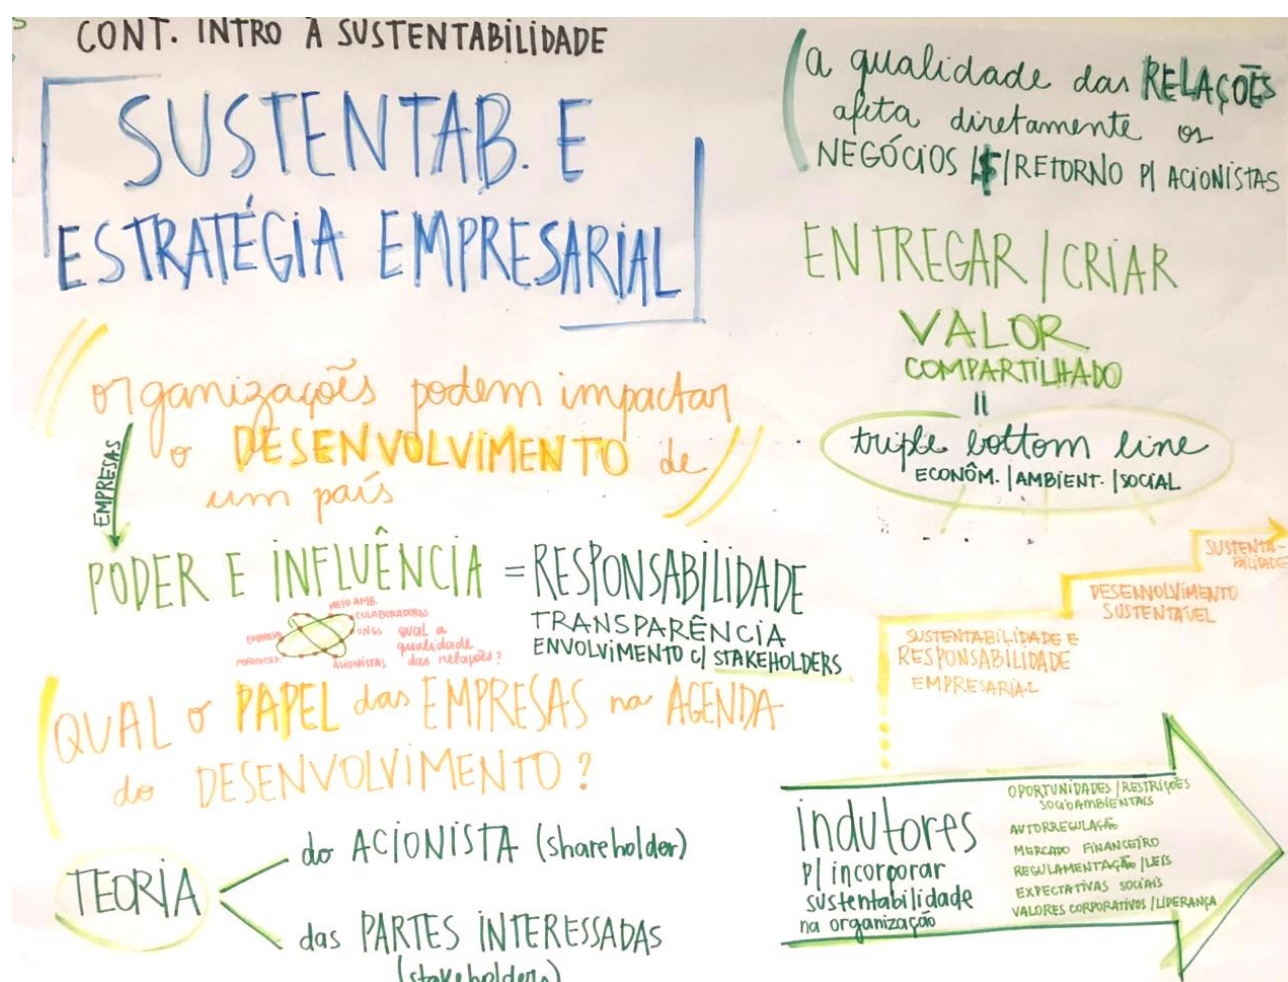 CONT. INTRO À SUSTENTABILIDADE
SUSTENTAB. E
ESTRATÉGIA EMPRESARIAL
organizações podem impactar
o DESENVOLVIMENTO de
um país
EMPRESAS
PODER E INFLUÊNCIA = RESPONSABILIDADE
TRANSPARÊNCIA
ENVOLVIMENTO C/ STAKEHOLDERS
MEIO AMB.
COLABORADORES
ONGS
ACIONISTAS
EMPRESA
qual a
qualidade
das relações?
QUAL o PAPEL das EMPRESAS na AGENDA
do DESENVOLVIMENTO?
TEORIA
do ACIONISTA (shareholder)
das PARTES INTERESSADAS
(stakeholders)
a qualidade das RELAÇÕES
afeta diretamente os
NEGÓCIOS /$/ RETORNO P/ ACIONISTAS
ENTREGAR / CRIAR
VALOR
COMPARTILHADO
=
triple bottom line
ECONÔM. / AMBIENT. / SOCIAL
SUSTENTA-
BILIDADE
DESENVOLVIMENTO
SUSTENTÁVEL
SUSTENTABILIDADE E
RESPONSABILIDADE
EMPRESARIAL
indutores
p/ incorporar
sustentabilidade
na organização
OPORTUNIDADES / RESTRIÇÕES
SOCIOAMBIENTAIS
AUTORREGULAÇÃO
MERCADO FINANCEIRO
REGULAMENTAÇÃO / LEIS
EXPECTATIVAS SOCIAIS
VALORES CORPORATIVOS / LIDERANÇA